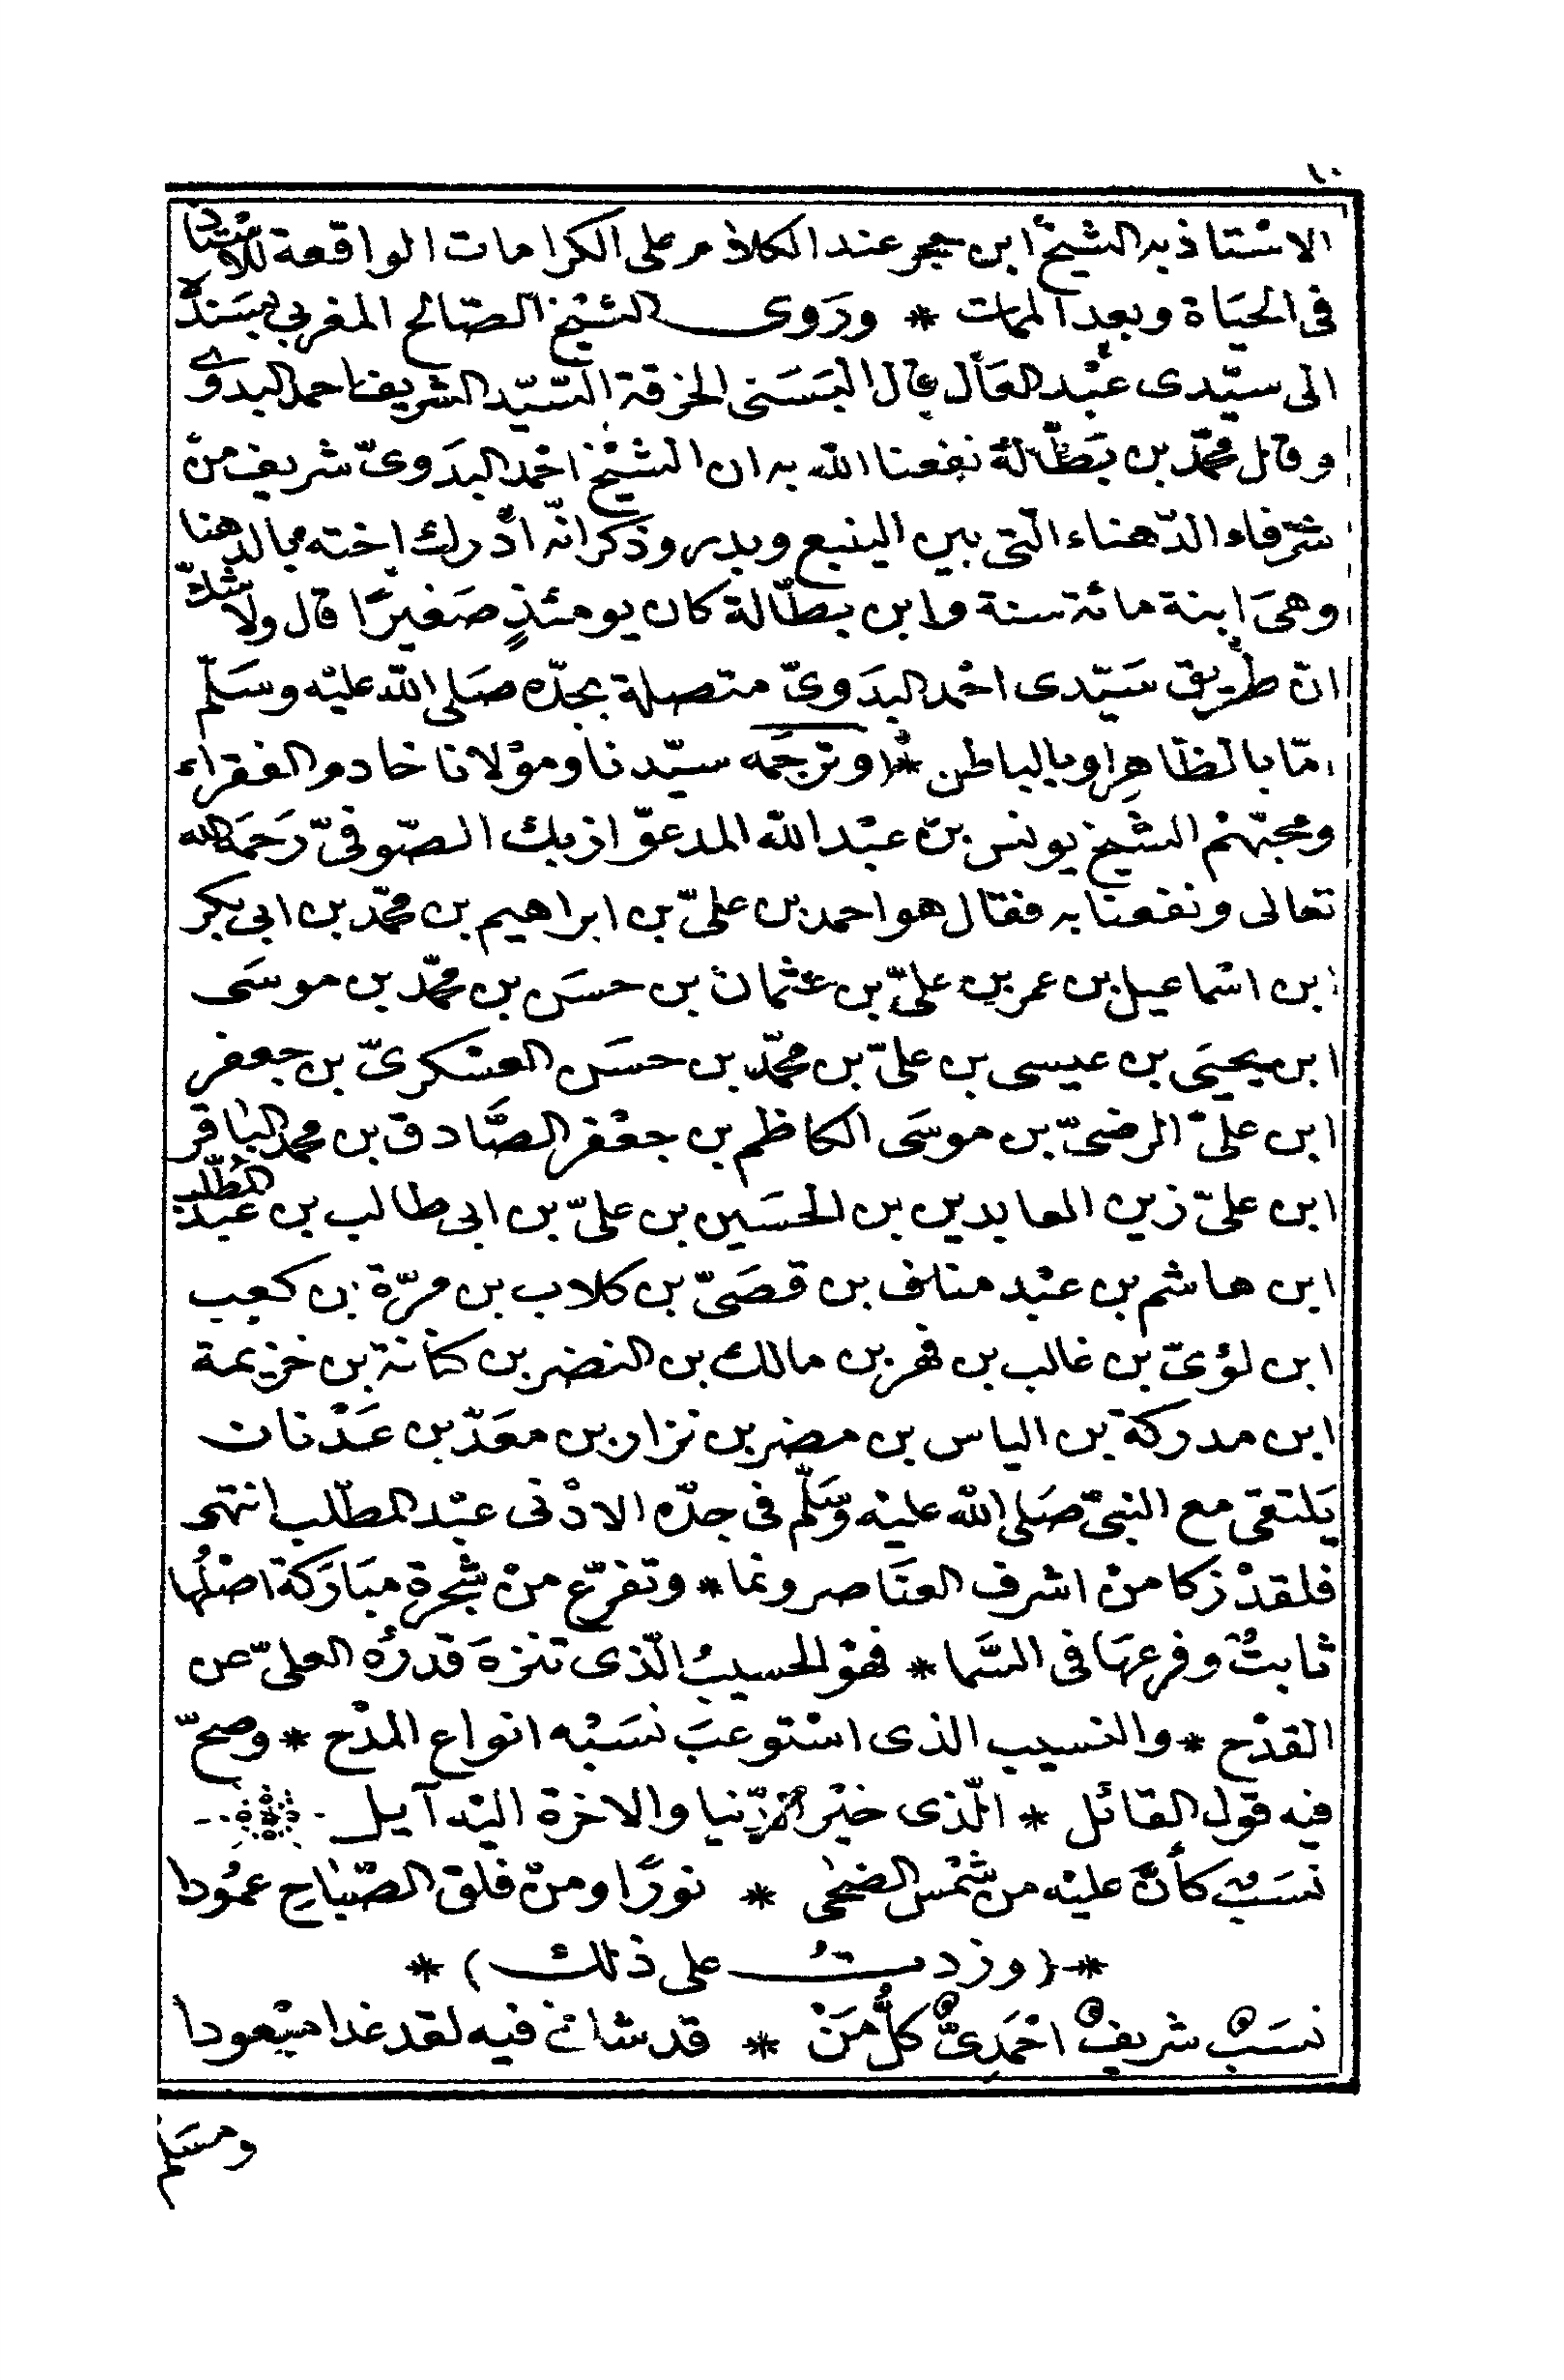 ١٠
الاستاذ به الشيخ ابن حجر عند الكلام على الكرامات الواقعة للأستاذ
فى الحيَاة وبعد الممات * ورَوى الشيخ الصّالح المغربي بسَنده
الى سيّدى عبْد العَال قال البَسَنى الخرقة السّيّد الشريف احمد البدوى
وقال محمّد بن بَطّالة نفعنا الله به ان الشيْخ احْمد البدَوىّ شريف منْ
شرفاء الدّهناء الّتى بين الينبع وبدر وذكر انّه ادْرك اخته بالدهنا
وهىَ ابنة مائة سنة وابن بطّالة كان يومئذٍ صَغيرًا قال ولا شكّ
انّ طريق سَيّدى احْمد البدَوىّ متصلة بجدّه صَلى الله عليْه وسَلّم
امّا بالظّاهِر او بالباطن * (وترجَمه سيّدنا وموْلانا خادم الفقراء
ومحبّهمْ الشّيخ يونس بنْ عبْد الله المدعوّ ازبك الصّوفىّ رَحمَه الله
تعالى ونفعنا به فقال هو احمد بن علىّ بن ابراهيم بن محمّد بن ابى بكر
ابن اسْماعيل بن عمر بن علىّ بن عثمان بن حسَن بن محمّد بن موسَى
ابن يحيَى بن عيسى بن علىّ بن محمّد بن حسَن العسْكرىّ بن جعفر
ابن علىّ الرضىّ بن موسَى الكاظم بن جعْفر الصَّادق بن محمد البَاقر
ابن علىّ زين العابدين بن الحسَين بن علىّ بن ابى طالب بن عبد المُطّلب
ابن هاشم بن عبْد مناف بن قصَىّ بن كلاب بن مرّة بن كعب
ابن لؤىّ بن غالب بن فهر بن مالك بن النضر بن كنانة بن خزيمة
ابن مدركة بن الياس بن مضر بن نزار بن معَدّ بن عَدْنان
يَلتقى مع النبىّ صَلى الله عليْه وسَلّم فى جدّه الادْنى عبْد المطّلب انتهى
فلقدْ زكا منْ اشرف العنَاصر ونما * وتفرّع منْ شجرةٍ مبَارَكة اصْلُها
ثابتٌ وفرعهَا فى السَّما * فهوْ الحسيبُ الّذى تنزهَ قدرُه العلىّ عن
القدْح * والنسيب الذى استوعبَ نسَبْه انواع المدْح * وصحّ
فيه قول القائل * الّذى خيْر الدّنيا والاخرة اليْه آيل
نسَبٌ كأنّ عليْه من شمْس الضحٰى * نورًا ومنْ فلق الصّبَاح عمُودا
* (وزدتُ على ذلك) *
نسَبٌ شريفٌ احْمَدِىٌّ كلُّ مَنْ * قد شانئ فيه لقد غدا مبْعودا
ومسَلم